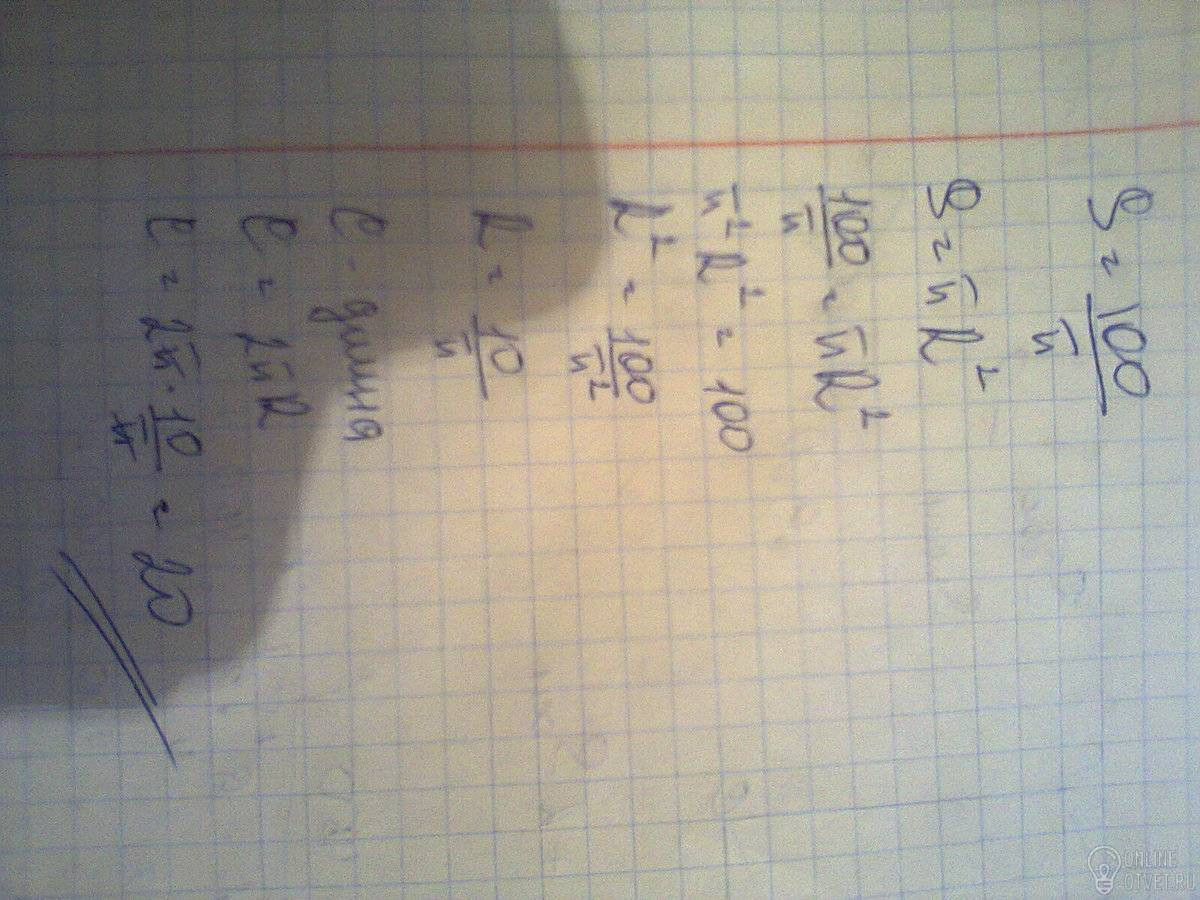 S = 100/π
S = πR²
100/π = πR²
π²R² = 100
R² = 100/π²
R = 10/π
C - длина
C = 2πR
C = 2π · 10/π = 20
ONLINE
OTVET.RU